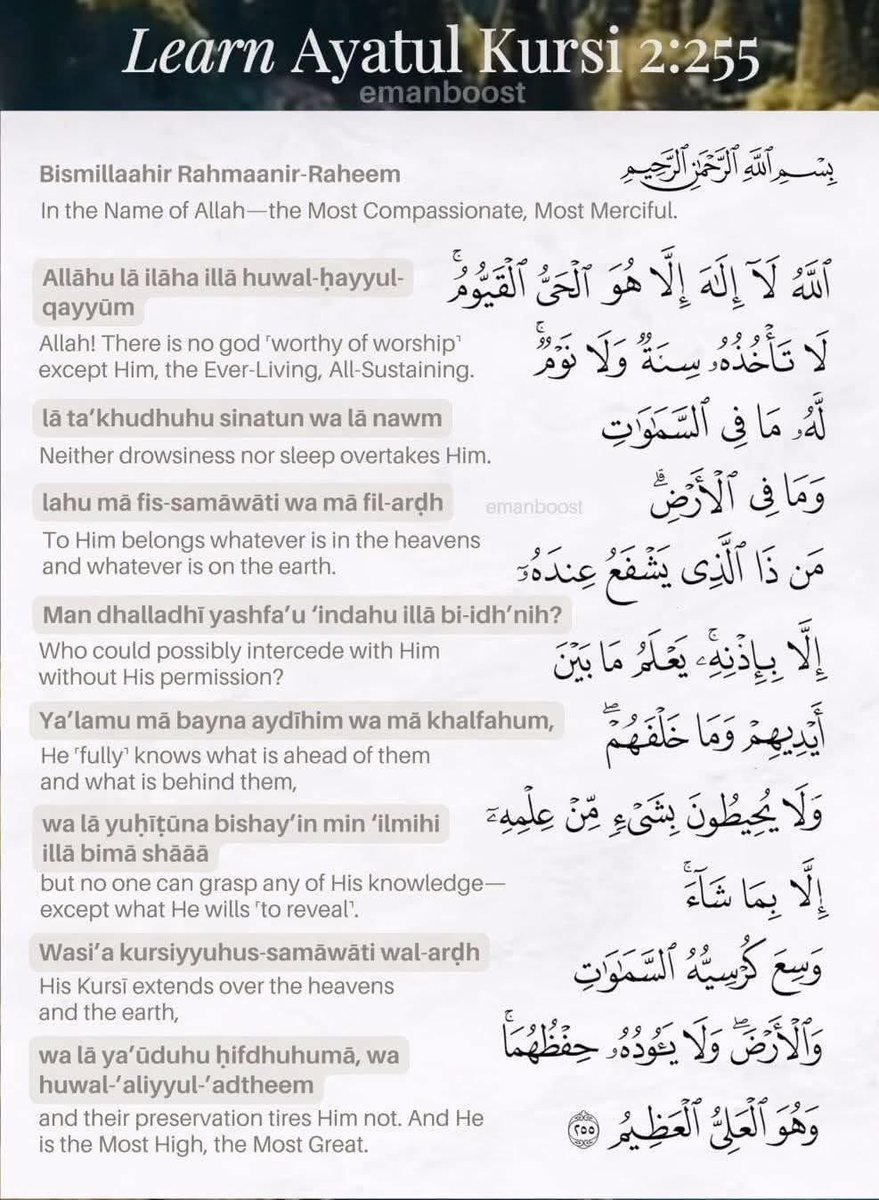 Learn Ayatul Kursi 2:255
emanboost
Bismillaahir Rahmaanir-Raheem
بِسْمِ ٱللَّهِ ٱلرَّحْمَٰنِ ٱلرَّحِيمِ
In the Name of Allah—the Most Compassionate, Most Merciful.
Allāhu lā ilāha illā huwal-ḥayyul-
qayyūm
ٱللَّهُ لَآ إِلَٰهَ إِلَّا هُوَ ٱلْحَىُّ ٱلْقَيُّومُ ۚ
Allah! There is no god ˹worthy of worship˺
except Him, the Ever-Living, All-Sustaining.
لَا تَأْخُذُهُۥ سِنَةٌ وَلَا نَوْمٌ ۚ
lā ta’khudhuhu sinatun wa lā nawm
لَّهُۥ مَا فِى ٱلسَّمَٰوَٰتِ
Neither drowsiness nor sleep overtakes Him.
lahu mā fis-samāwāti wa mā fil-arḍh
emanboost
وَمَا فِى ٱلْأَرْضِ ۗ
To Him belongs whatever is in the heavens
and whatever is on the earth.
مَن ذَا ٱلَّذِى يَشْفَعُ عِندَهُۥٓ
Man dhalladhī yashfa’u ‘indahu illā bi-idh’nih?
Who could possibly intercede with Him
without His permission?
إِلَّا بِإِذْنِهِۦ ۚ يَعْلَمُ مَا بَيْنَ
Ya’lamu mā bayna aydīhim wa mā khalfahum,
أَيْدِيهِمْ وَمَا خَلْفَهُمْ ۖ
He ˹fully˺ knows what is ahead of them
and what is behind them,
wa lā yuḥīṭūna bishay’in min ‘ilmihi
illā bimā shāāā
وَلَا يُحِيطُونَ بِشَىْءٍ مِّنْ عِلْمِهِۦٓ
but no one can grasp any of His knowledge—
except what He wills ˹to reveal˺.
إِلَّا بِمَا شَآءَ ۚ
Wasi’a kursiyyuhus-samāwāti wal-arḍh
وَسِعَ كُرْسِيُّهُ ٱلسَّمَٰوَٰتِ
His Kursī extends over the heavens
and the earth,
وَٱلْأَرْضَ ۖ وَلَا يَـُٔودُهُۥ حِفْظُهُمَا ۚ
wa lā ya’ūduhu ḥifdhuhumā, wa
huwal-’aliyyul-’adtheem
and their preservation tires Him not. And He
is the Most High, the Most Great.
وَهُوَ ٱلْعَلِىُّ ٱلْعَظِيمُ ٢٥٥